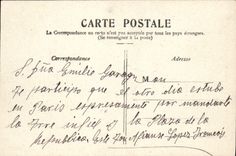 CARTE POSTALE
La Correspondance au recto n'est pas acceptée par tous les pays étrangers.
(Se renseigner à la poste)
Correspondance
Adresse
S. Dña Emilia
Te participo que el otro dia estube
en Paris espresamente por mandarte
la Torre y la Plaza de
Republica Este Lopez